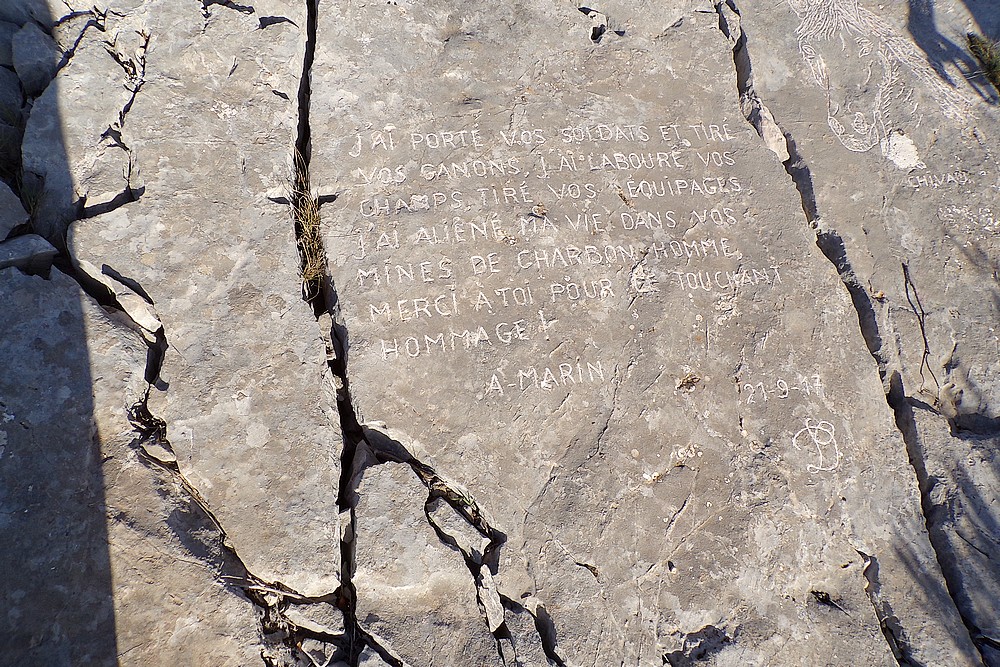 J'AI PORTÉ VOS SOLDATS ET TIRÉ
VOS CANONS, J'AI LABOURÉ VOS
CHAMPS, TIRÉ VOS ÉQUIPAGES
J'AI ALIÉNÉ MA VIE DANS VOS
MINES DE CHARBON, HOMME,
MERCI A TOI POUR CE TOUCHANT
HOMMAGE!
A-MARIN
21-9-17